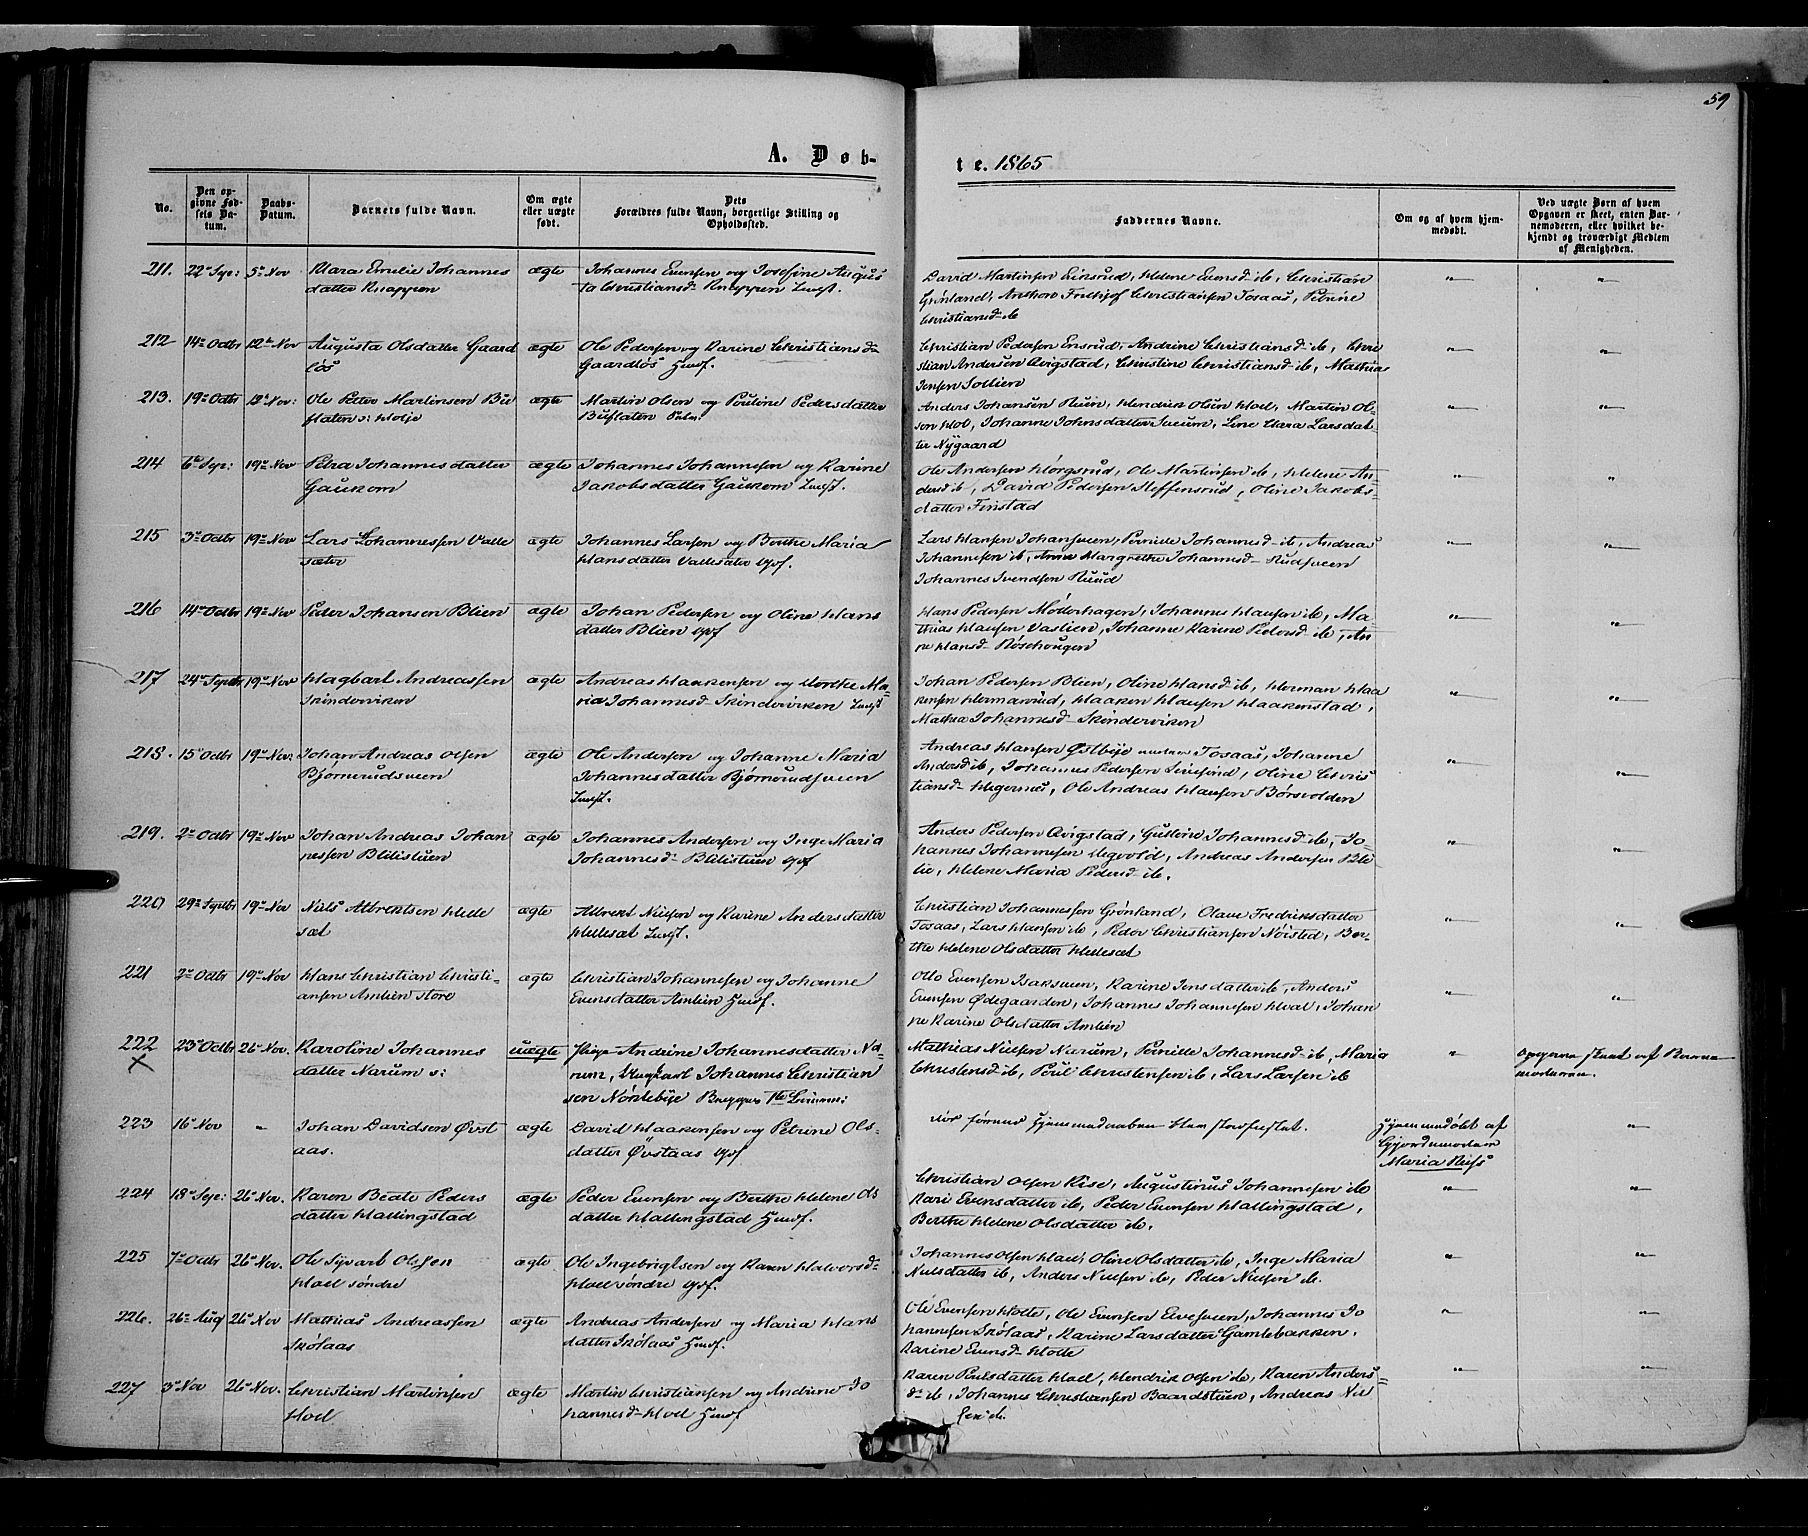 59
A. Døb-
te. 1865
No.
Den op-
givne Fød-
sels Da-
tum.
Daabs-
Datum.
Barnets fulde Navn.
Om ægte
eller uægte
født.
Dets
Forældres fulde Navn, borgerlige Stilling og
Opholdssted.
Faddernes Navne.
Om og af hvem hjem-
medøbt.
Ved uægte Børn af hvem
Opgaven er skeet, enten Bar-
nemoderen, eller hvilket be-
kjendt og troværdigt Medlem
af Menigheden.
211. 22de Sep: 5te Nov Klara Emilie Johannes
datter Knappen
ægte
Johannes Evensen og Josefine Augus
ta Christiansd- Knappen
David Martinsen Einsrud, Helene Evensd ib, Christian
Grønland, Anthon Frithjof Christiansen Tosaas, Petrine
Christiansd ib
212 14de Octbr 12te Nov Augusta Olsdatter Gaard
løs
ægte
Ole Pedersen og Karine Christiansd
Gaardløs Husf.
Christian Pedersen Ensrud, Andrine Christiansd ib, Chri
stian Andersen Avigstad, Christine Christiansd ib, Mathias
Jensen Sollien
213. 19de Octbr 12te Nov: Ole Peter Martinsen Bu
flaten s: Holje
ægte
Martin Olsen og Pouline Pedersdatter
Buflaten
Anders Johansen Ruen, Hendrik Olsen Hoel, Martin Ol-
sen Hol, Johanne Johnsdatter Sveum, Line Clara Larsdat-
ter Nygaard
214 6te Sep: 19de Nov Petra Johannesdatter
Gaukom
ægte
Johannes Johannesen og Karine
Jakobsdatter Gaukom
Ole Andersen Horgsrud, Ole Martinsen ib, Helene An
dersd ib, David Pedersen Steffensrud, Oline Jakobs-
datter Finstad
215 3de Octbr 19de Nov Lars Johannessen Valle
sæter
ægte
Johannes Larsen og Berthe Maria
Hansdatter Vallesæter
Lars Hansen Johansveen, Pernille Johannesd- ib, Andreas
Johannesen ib, Anne Margrethe Johannesd- Rudsveen
Johannes Svendsen Ruud
216 14de Octbr 19de Nov Peder Johansen Blien
ægte
Johan Pedersen og Oline Hans
datter Blien
Hans Pedersen Møderhagen, Johannes Hansen ib, Ma-
thias Hansen Vastien, Johanne Karine Pedersd- ib, An
ne Hansd- Røsehougen
217 24de Septbr 19de Nov Hagbart Andreassen
Skinderviken
ægte
Andreas Haakensen og Dorthe Ma-
ria Johannesd- Skinderviken
Johan Pedersen Blien, Oline Hansd- ib, Herman Haa
kensen Hermanrud, Haaken Hansen Haakenstad,
Mathea Johannesd- Skinderviken
218. 15de Octbr 19de Nov: Johan Andreas Olsen
Bjørnerudsveen
ægte
Ole Andersen og Johanne Maria
Johannesdatter Bjørnerudsveen
Andreas Hansen Østbye Tosaas, Johanne
Andersd ib, Johannes Pedersen, Oline Chris
tiansd- Hegernes, Ole Andreas Hansen Børsvolden
219. 2de Octbr 19de Nov Johan Andreas Johan
nessen Blilistuen
ægte
Johannes Andersen og Inge Maria
Johannesd- Blilistuen
Anders Pedersen Avigstad, Gustine Johannesd- ib, Jo-
hannes Johannesen Degvold, Andreas Andersen Bli
lie, Helene Maria Pedersd- ib.
220 29de Septbr 19de Nov Nils Albrektsen Helle
sæt
ægte
Albrekt Nilsen og Karine Andersdatter
Hellesæt
Christian Johannessen Grønland, Olave Fredriksdatter
Tosaas, Lars Hansen ib, Peder Christiansen Nøisted, Ber-
the Helene Olsdatter Hellesæt
221 2de Octbr 19de Nov Hans Christian Christi-
ansen Amlien store
ægte
Christian Johannesen og Johanne
Evensdatter Amlien Husf.
Otto Evensen Isaksveen, Karine Jensdatter ib, Anders
Evensen Ødegaarden, Johannes Johannesen Hoel, Johan
ne Karine Olsdatter Amlien
222 23de Octbr 26de Nov. Karoline Johannes
datter Narum s:
uægte
Pige Andrine Johannesdatter Na-
rum, Ungkarl Johannes Christian
sen Nørstebye
Mathias Nielsen Narum, Pernille Johannesd- ib, Maria
Christensd ib, Poul Christensen ib, Lars Larsen ib
Opgaven skeet af Barne
moderen.
X
223 16de Nov Johan Davidsen Øvst
aas.
ægte
David Haakensen og Petrine Ols-
datter Øvstaas
Hjemmedøbt af
Gjordemoderen
Maria Ruf
224 18de Sep: 26de Nov. Karen Beate Peders
datter Hallingstad
ægte
Peder Evensen og Berthe Helene Ols
datter Hallingstad Husf.
Christian Olsen Rise, Augustinus Johannesen ib
Kari Evensdatter ib, Peder Evensen Hallingstad,
Berthe Helene Olsdatter ib.
225 7de Octbr 26de Nov. Ole Syvart Olsen
Hoel søndre
ægte
Ole Ingebrigtsen og Karen Halvorsd-
Hoel søndre
Johannes Olsen Hoel, Oline Olsdatter ib, Inge Maria
Nielsdatter ib, Anders Nielsen ib, Peder Nielsen ib.
226. 26de Aug 26de Nov Mathias Andreassen
Skølaas
ægte
Andreas Andersen og Maria Hans
datter Skølaas Husf.
Ole Evensen Holte, Ole Evensen Elvesveen, Johannes Jo
hannesen Skølaas, Karine Larsdatter Gamlebakken,
Karine Evensd- Holte
227 3de Nov 26de Nov. Christian Martinsen
Hoel
ægte
Martin Christiansen og Andrine Jo
hannesd- Hoel Husf
Karen Poulsdatter Hoel, Hendrik Olsen ib, Karen Anders-
d- ib, Johannes Christiansen Baardstuen, Andreas Nil
sen ib.